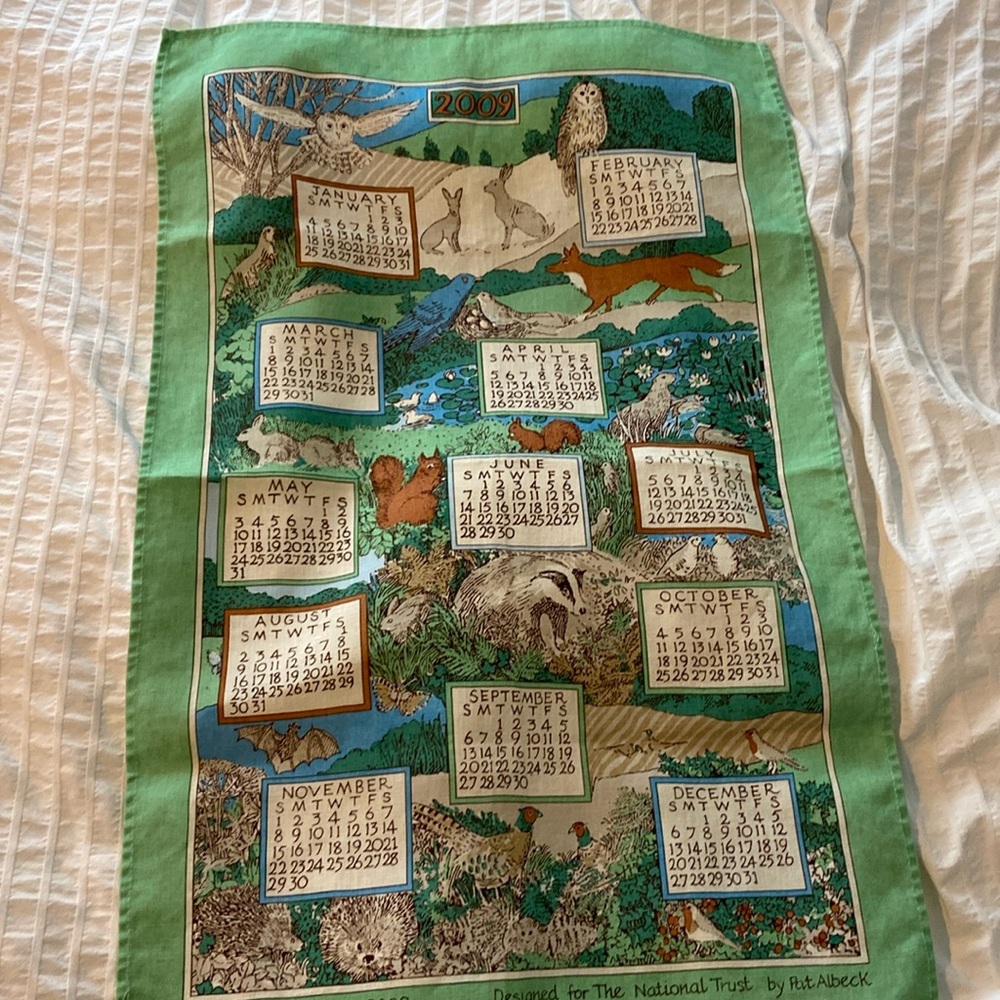 2009
JANUARY
S M T W T F S
1 2 3
4 5 6 7 8 9 10
11 12 13 14 15 16 17
18 19 20 21 22 23 24
25 26 27 28 29 30 31
FEBRUARY
S M T W T F S
1 2 3 4 5 6 7
8 9 10 11 12 13 14
15 16 17 18 19 20 21
22 23 24 25 26 27 28
MARCH
S M T W T F S
1 2 3 4 5 6 7
8 9 10 11 12 13 14
15 16 17 18 19 20 21
22 23 24 25 26 27 28
29 30 31
APRIL
S M T W T F S
1 2 3 4
5 6 7 8 9 10 11
12 13 14 15 16 17 18
19 20 21 22 23 24 25
26 27 28 29 30
MAY
S M T W T F S
1 2
3 4 5 6 7 8 9
10 11 12 13 14 15 16
17 18 19 20 21 22 23
24 25 26 27 28 29 30
31
JUNE
S M T W T F S
1 2 3 4 5 6
7 8 9 10 11 12 13
14 15 16 17 18 19 20
21 22 23 24 25 26 27
28 29 30
JULY
S M T W T F S
1 2 3 4
5 6 7 8 9 10 11
12 13 14 15 16 17 18
19 20 21 22 23 24 25
26 27 28 29 30 31
AUGUST
S M T W T F S
1
2 3 4 5 6 7 8
9 10 11 12 13 14 15
16 17 18 19 20 21 22
23 24 25 26 27 28 29
30 31
SEPTEMBER
S M T W T F S
1 2 3 4 5
6 7 8 9 10 11 12
13 14 15 16 17 18 19
20 21 22 23 24 25 26
27 28 29 30
OCTOBER
S M T W T F S
1 2 3
4 5 6 7 8 9 10
11 12 13 14 15 16 17
18 19 20 21 22 23 24
25 26 27 28 29 30 31
NOVEMBER
S M T W T F S
1 2 3 4 5 6 7
8 9 10 11 12 13 14
15 16 17 18 19 20 21
22 23 24 25 26 27 28
29 30
DECEMBER
S M T W T F S
1 2 3 4 5
6 7 8 9 10 11 12
13 14 15 16 17 18 19
20 21 22 23 24 25 26
27 28 29 30 31
Designed for The National Trust by Pat Albeck